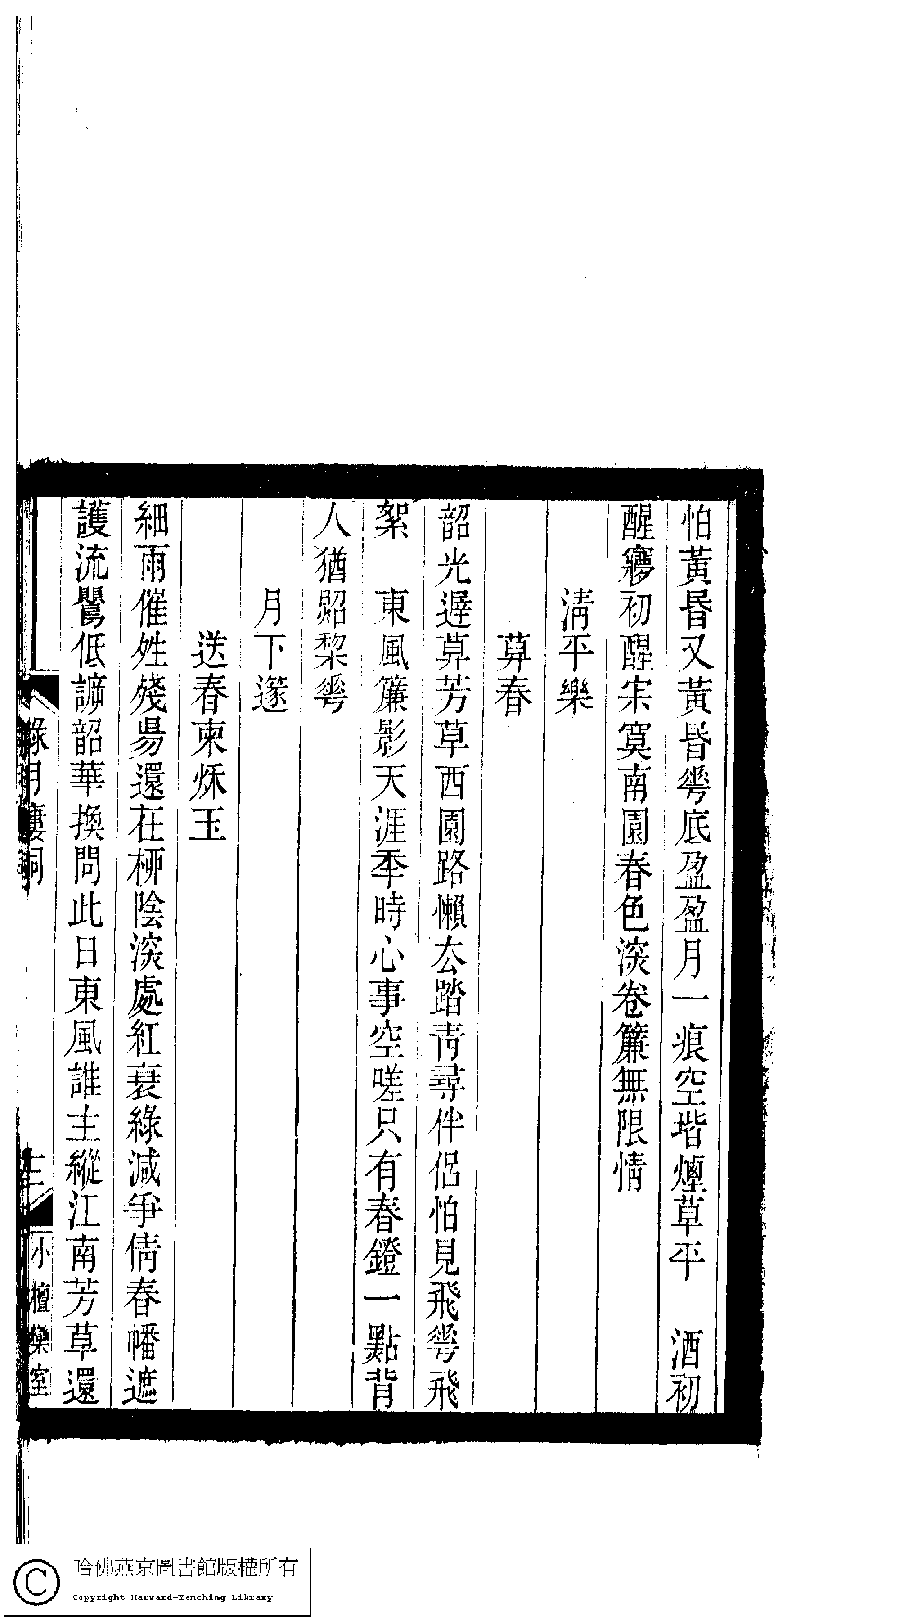 怕黃昏又黃昏蕚底盈盈月一痕空堦煙草平　酒初
醒㝱初醒宋寞南園春色深卷簾無限情
清平樂
暮春
韶光遲暮芳草西園路懶厺踏靑尋伴侶怕見飛雩飛
絮　東風簾影天涯秊時心事空嗟只有春鐙一點背
人猶照棃雩
月下邃
送春柬炑玉
細雨催殘昜還在桺陰深處紅衰綠減爭倩春幡遮
護流鶯低諦韶華換問此日東風誰主縱江南芳草還
綠月廔詞
三
小檀欒室
哈佛燕京圖書館版權所有
Copyright Harvard-Yenching Library